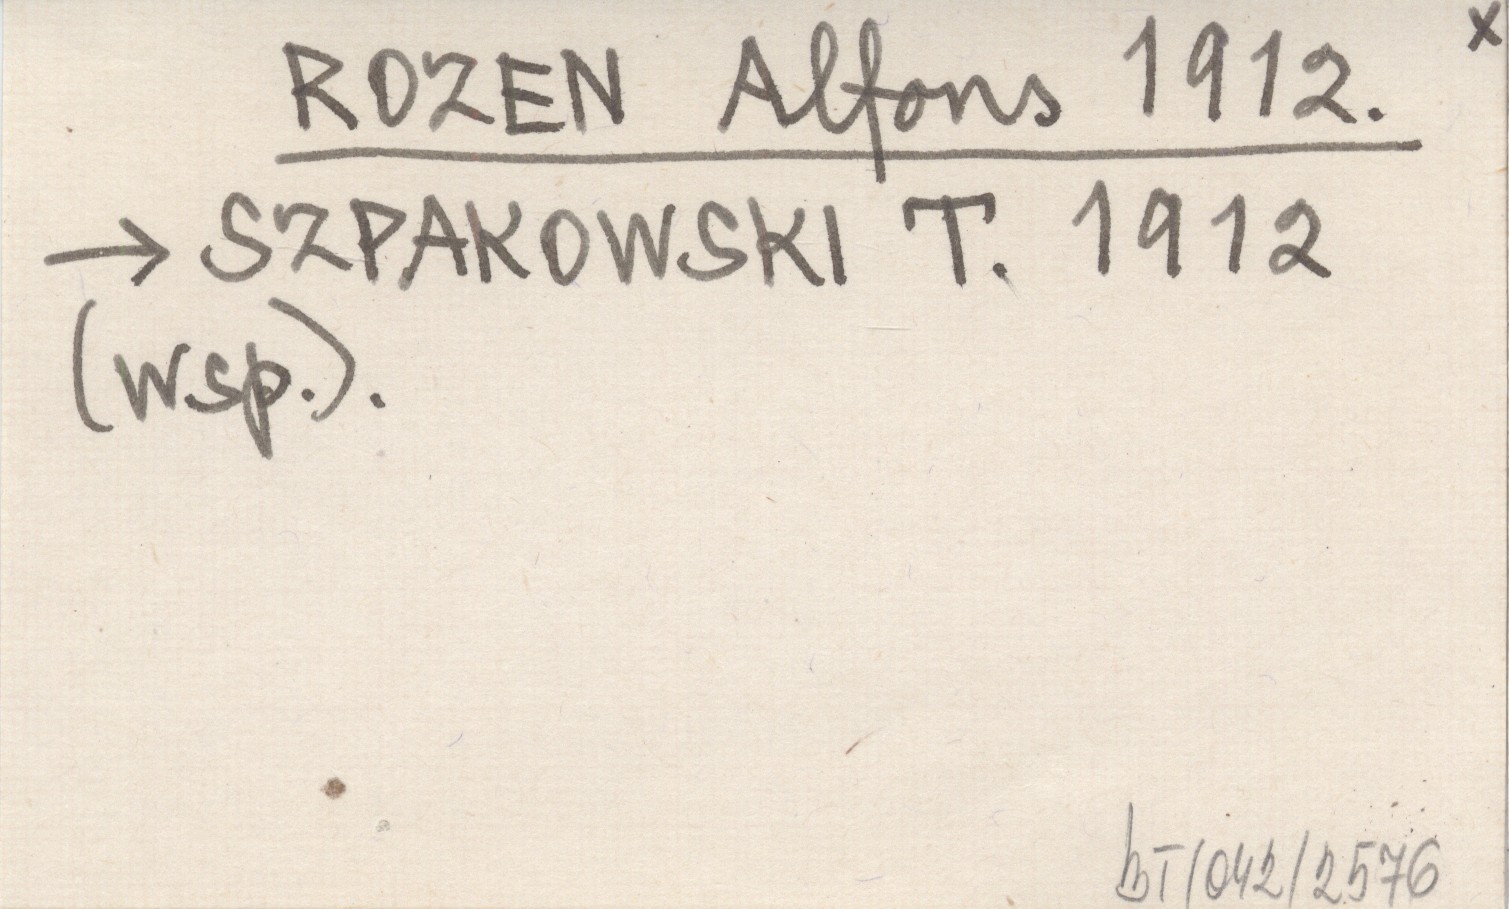 x
ROZEN Alfons 1912.
→ SZPAKOWSKI T. 1912
(wsp.).
bT/042/2576